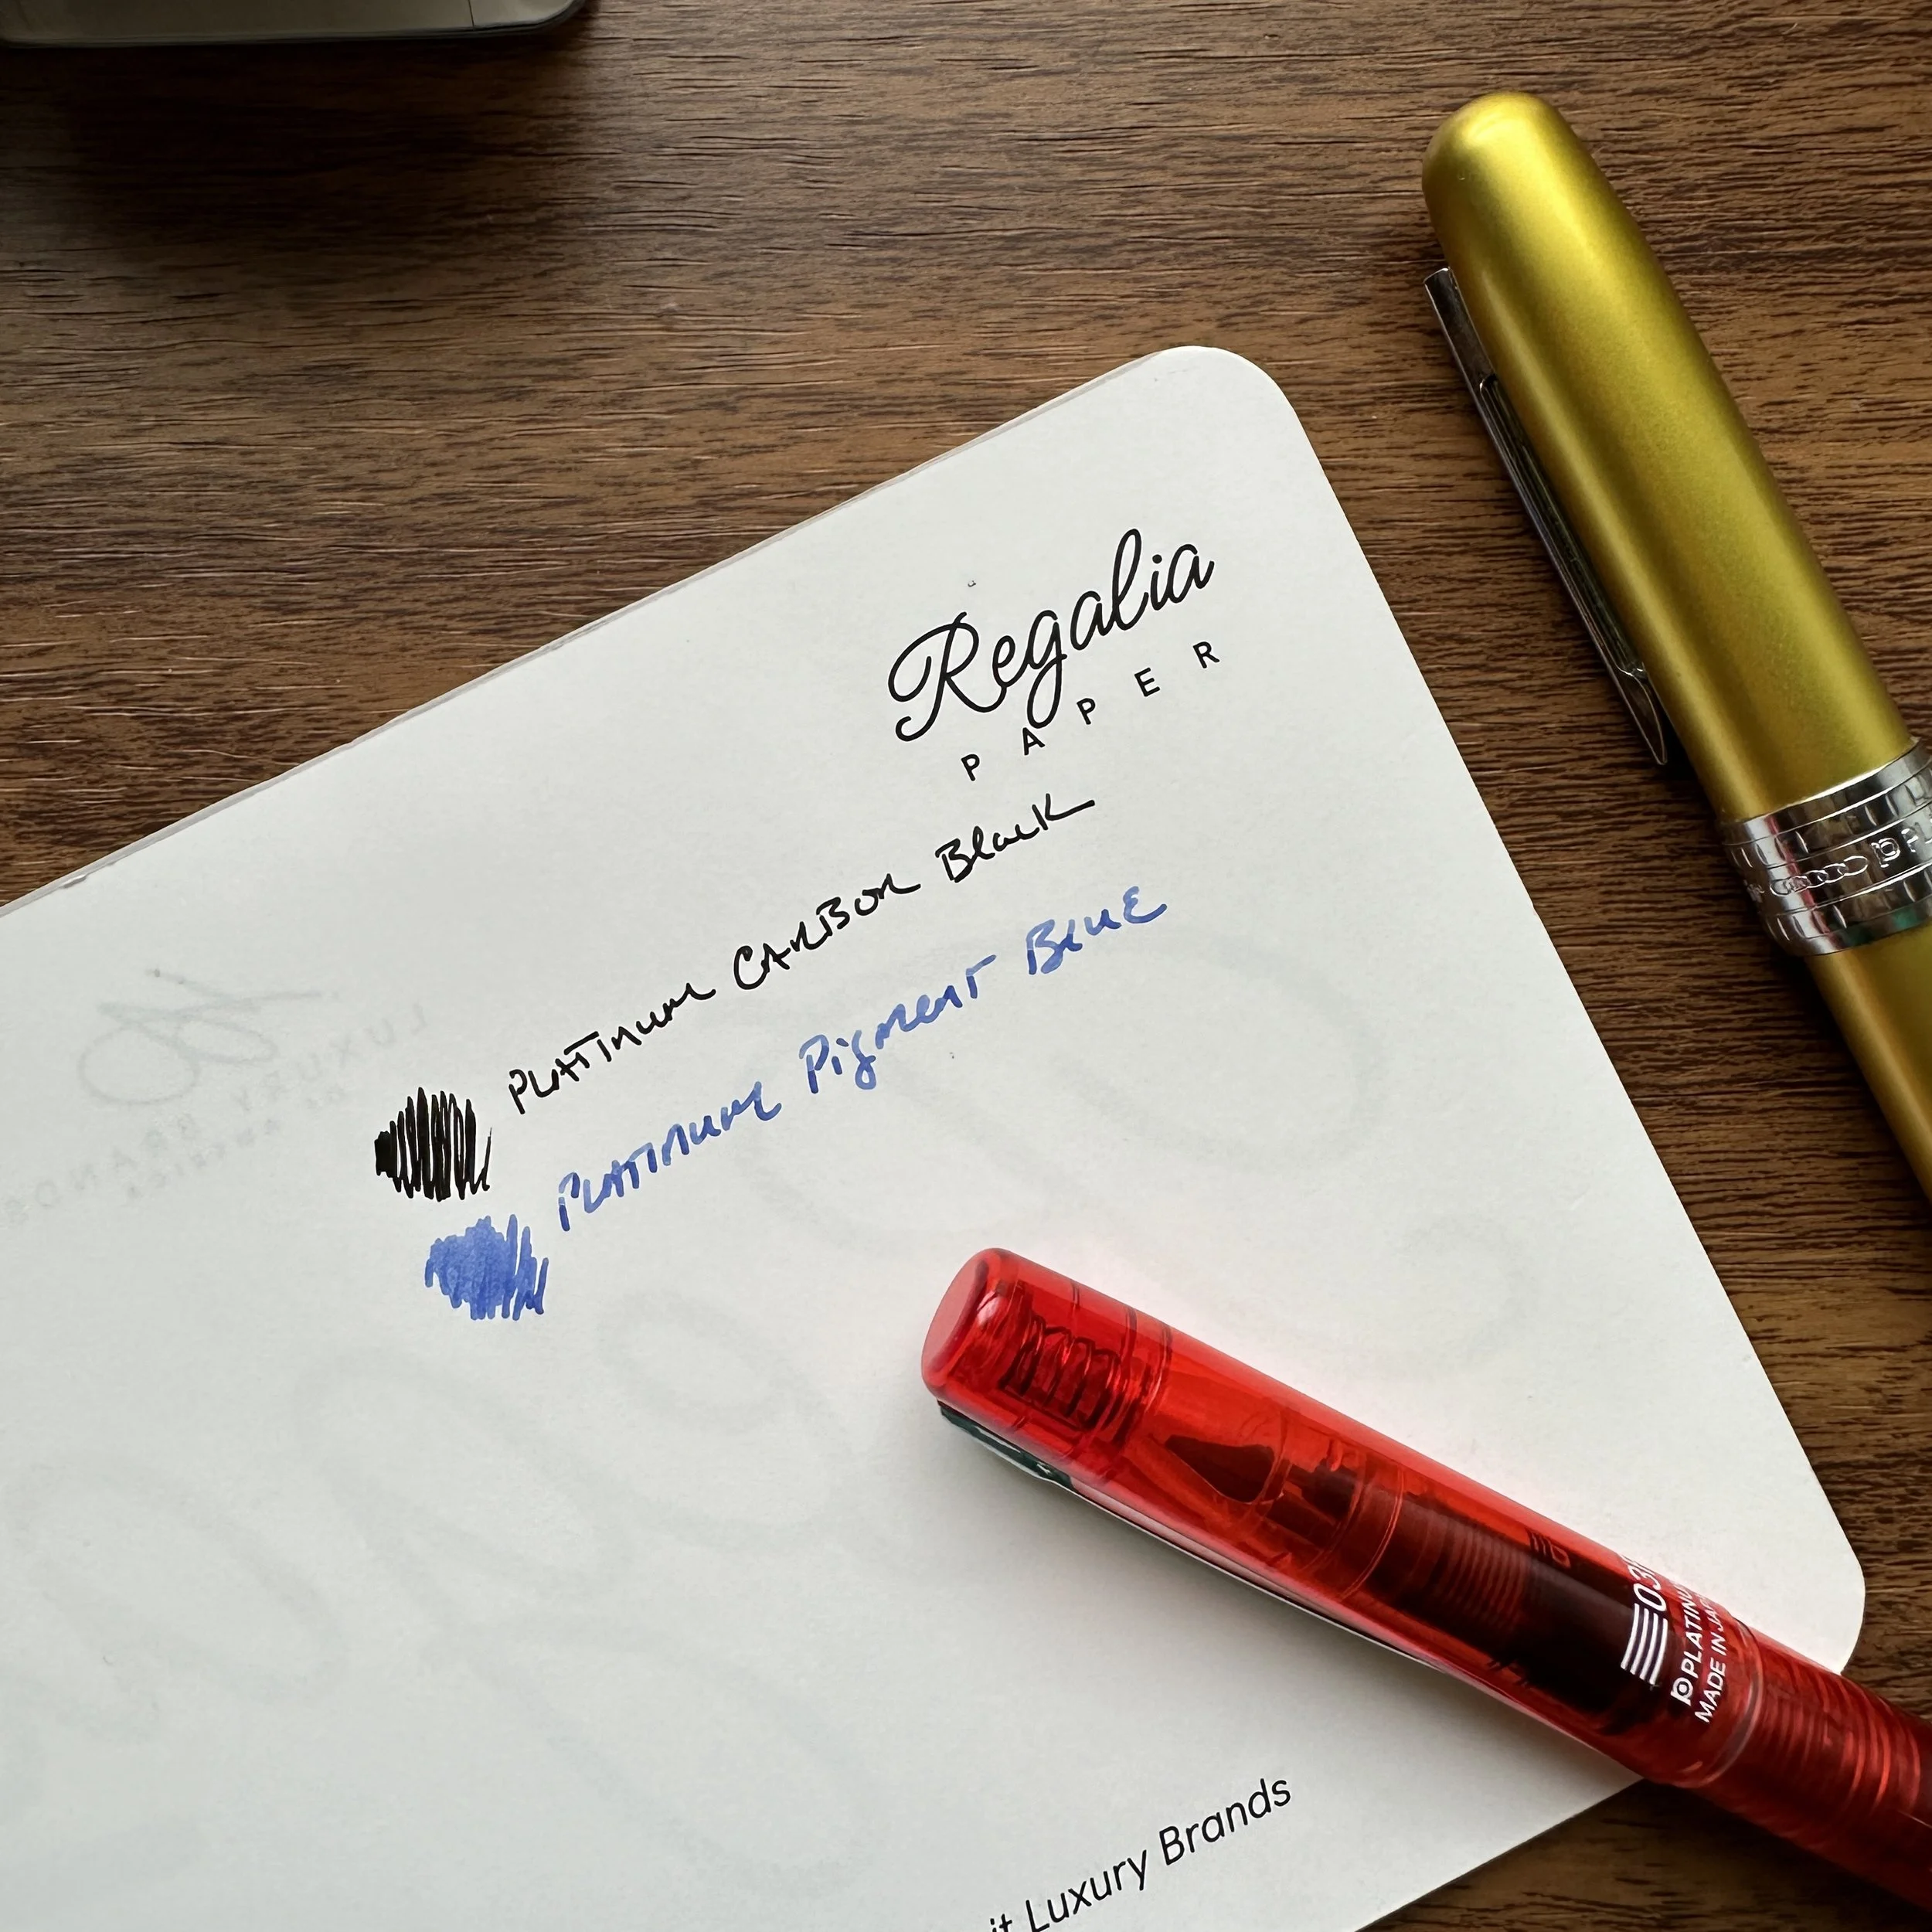 Regalia
PAPER
PLATINUM CARBON Black
PLATINUM Pigment Blue
PLATINUM
MADE IN JA
Luxury Brands
LUXURY BRANDS